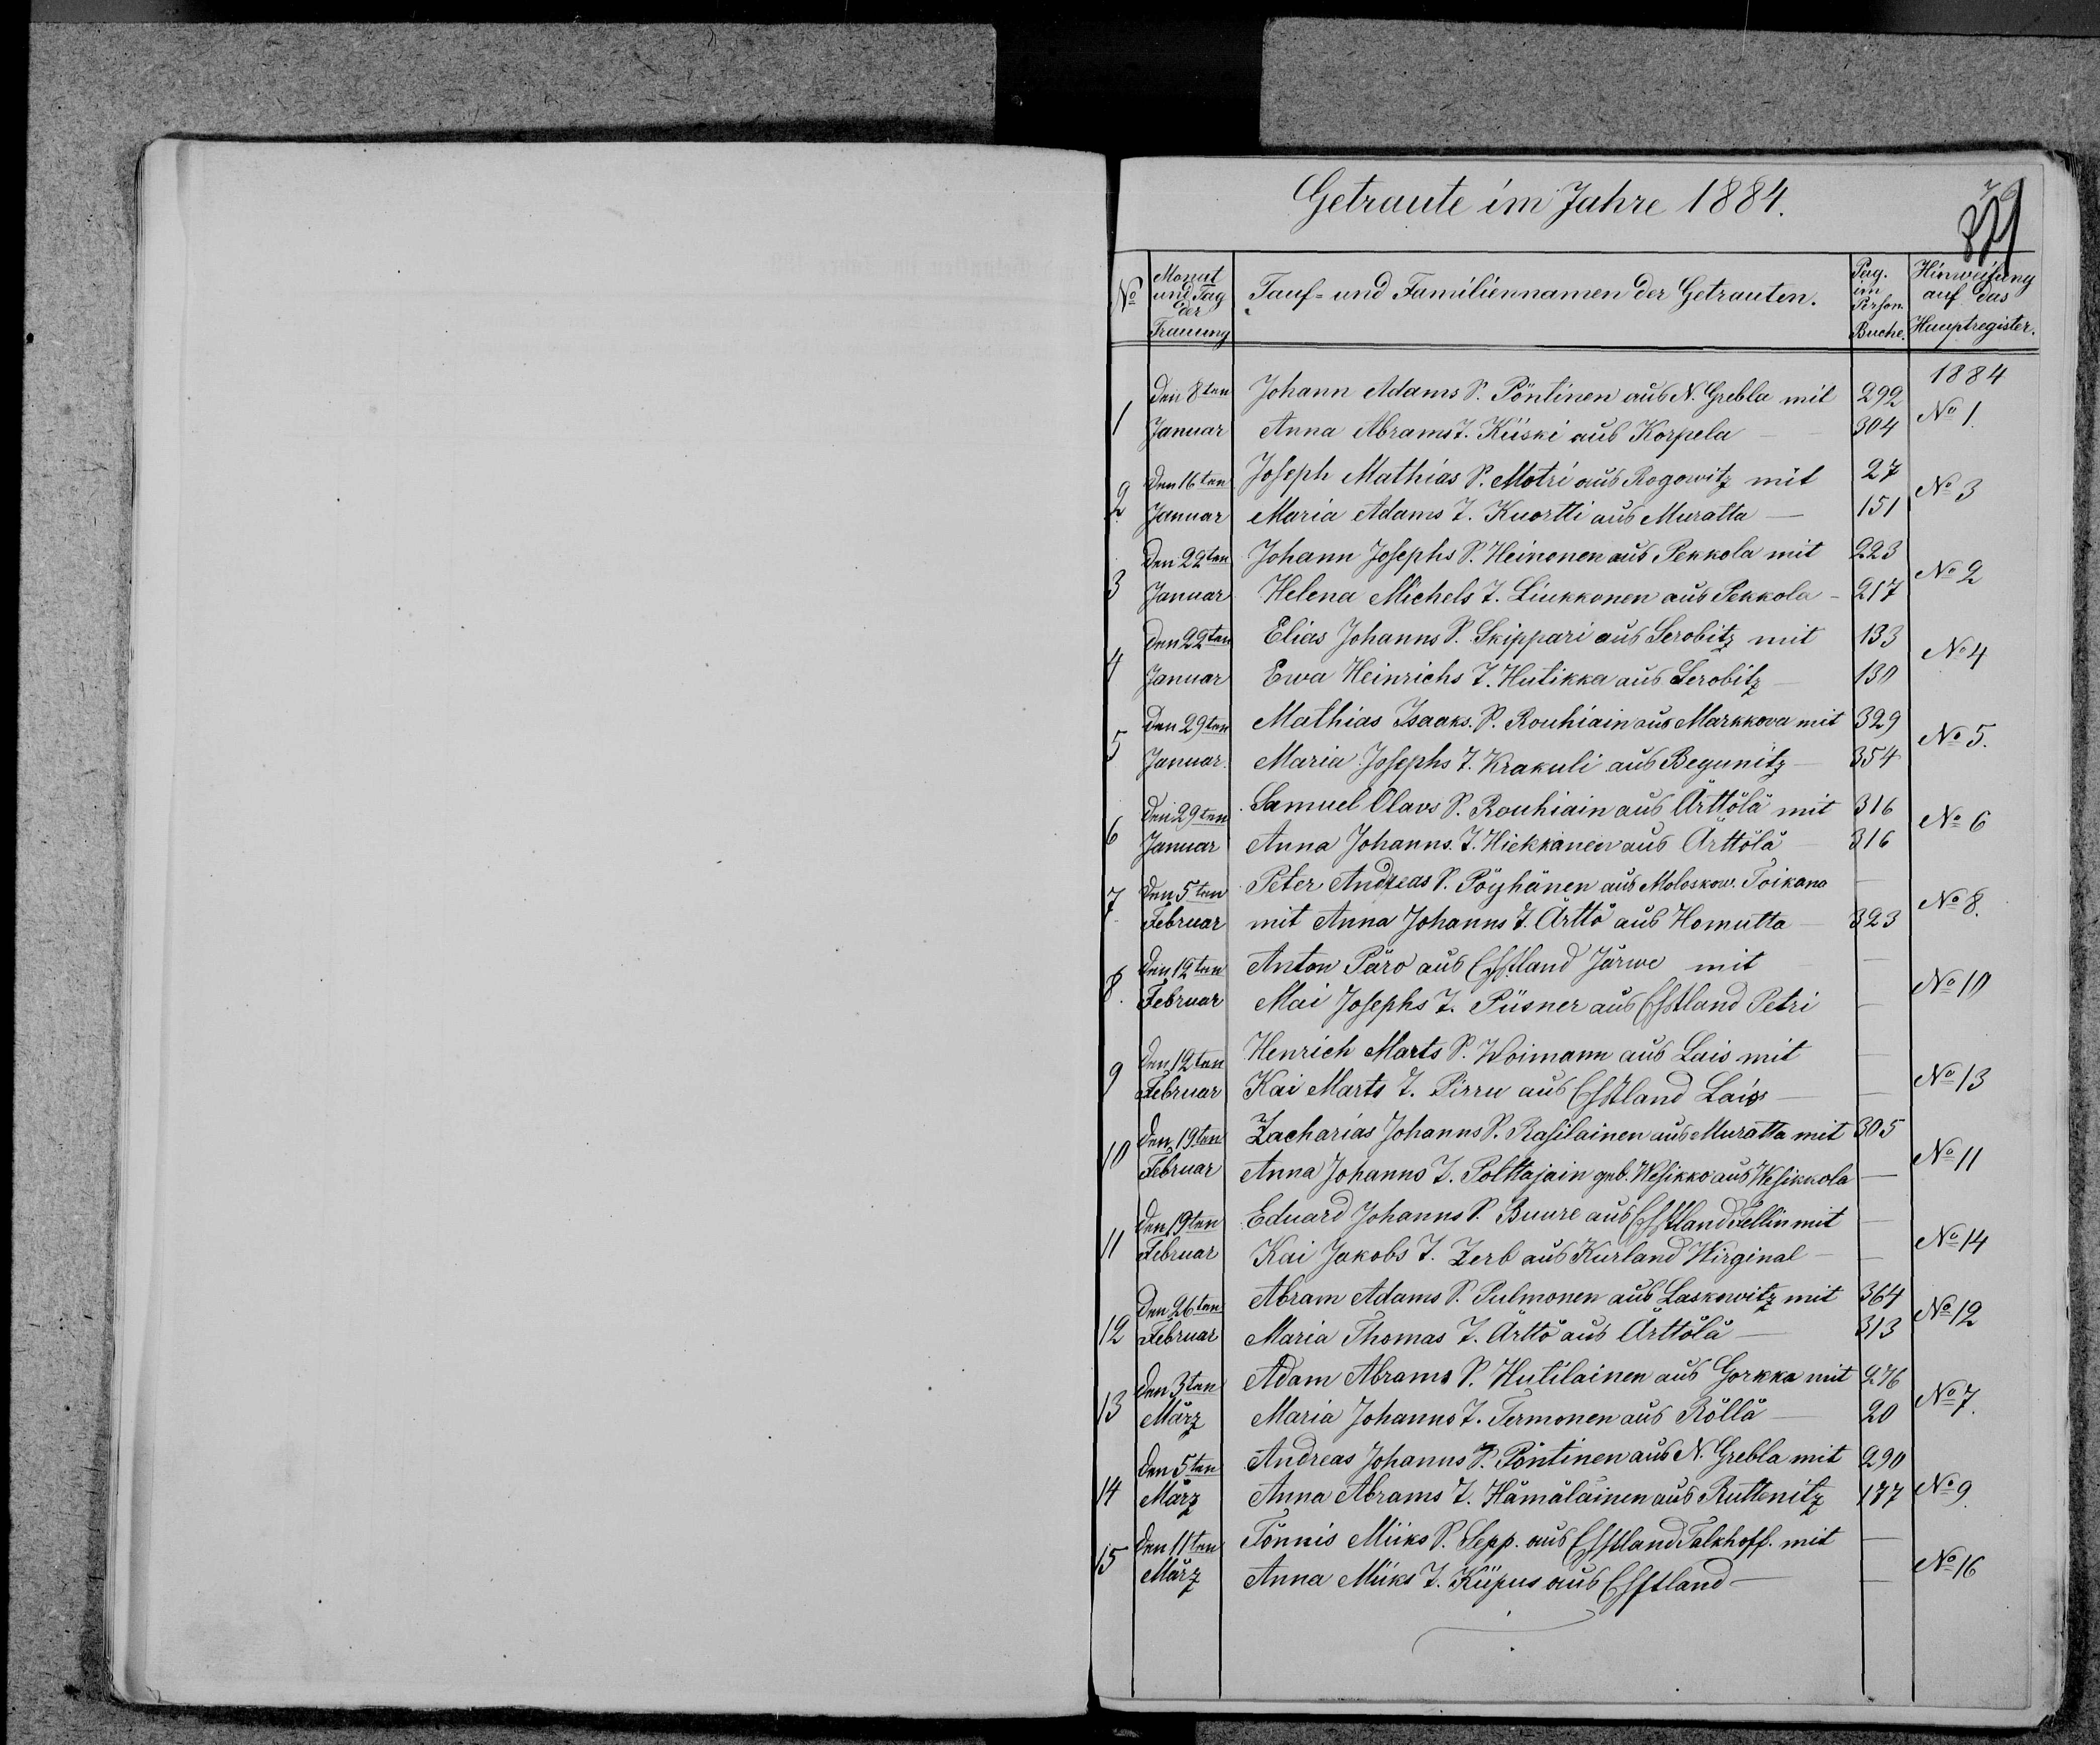 Getraute im Jahre 1884.
79
No Monat und Tag der Trauung Tauf- und Familiennamen der Getrauten. Pag. im Person. Buche. Hinweisung auf das Hauptregister.
1884
1 den 8ten Johann Adams S. Pöntinen aus N. Grebla mit 292 No 1.
Januar Anna Abrams T. Kiiski aus Korpela — 304
2 den 16ten Joseph Mathias S. Motri aus Rogowitz mit 27 No 3
Januar Maria Adams T. Kuortti aus Muratta — 151
3 den 22ten Johann Josephs S. Heinonen aus Pekkola mit 223 No 2
Januar Helena Michels T. Liukkonen aus Pekkola - 217
4 den 22ten Elias Johanns S. Skippari aus Serobitz mit 133 No 4
Januar Ewa Heinrichs T. Hutikka aus Serobitz — 130
5 den 29ten Mathias Isaaks. S. Rouhiain aus Markkova mit 329 No 5.
Januar. Maria Josephs T. Krakuli aus Begunitz — 354
6 den 29ten Samuel Olavs S. Rouhiain aus Ärttölä mit 316 No 6
Januar Anna Johanns. T. Hiekkanen aus Ärttölä — 316
7. den 5ten Peter Andreas S. Pöyhänen aus Moloskow. Toikana — No 8.
Februar mit Anna Johanns T. Ärttö aus Homutta — 323
8. den 12ten Anton Päro aus Esstland Järwe mit — No 10
Februar Mai Josephs T. Püsner aus Esstland Petri —
9 den 12ten Henrich Marts S. Woimann aus Lais mit — No 13
Februar Kai Marts T. Pirru aus Esstland Lais — —
10 den 19ten Zacharias Johanns S. Rasilainen aus Muratta mit 305 No 11
Februar Anna Johanns T. Polttajain geb. Wesikko aus Wesikkola —
11 den 19ten Eduard Johanns S. Buure aus Esstland Fellin mit — No 14
Februar Kai Jakobs T. Zerb aus Kurland Wirginal — —
12 den 26ten Abram Adams S. Pulmonen aus Laskowitz mit 364 No 12
Februar Maria Thomas T. Ärttö aus Ärttölä — 313
13 den 3ten Adam Abrams S. Hutilainen aus Gorkka mit 276 No 7.
März Maria Johanns T. Termonen aus Röllä — 20
14 den 5ten Andreas Johanns S. Pöntinen aus N. Grebla mit 290 No 9.
März Anna Abrams T. Hämäläinen aus Ruttenitz 177
15 den 11ten Tönnis Miiks S. Sepp. aus Esstland Talkhoff. mit — No 16
März Anna Miiks T. Küpus aus Esstland — —